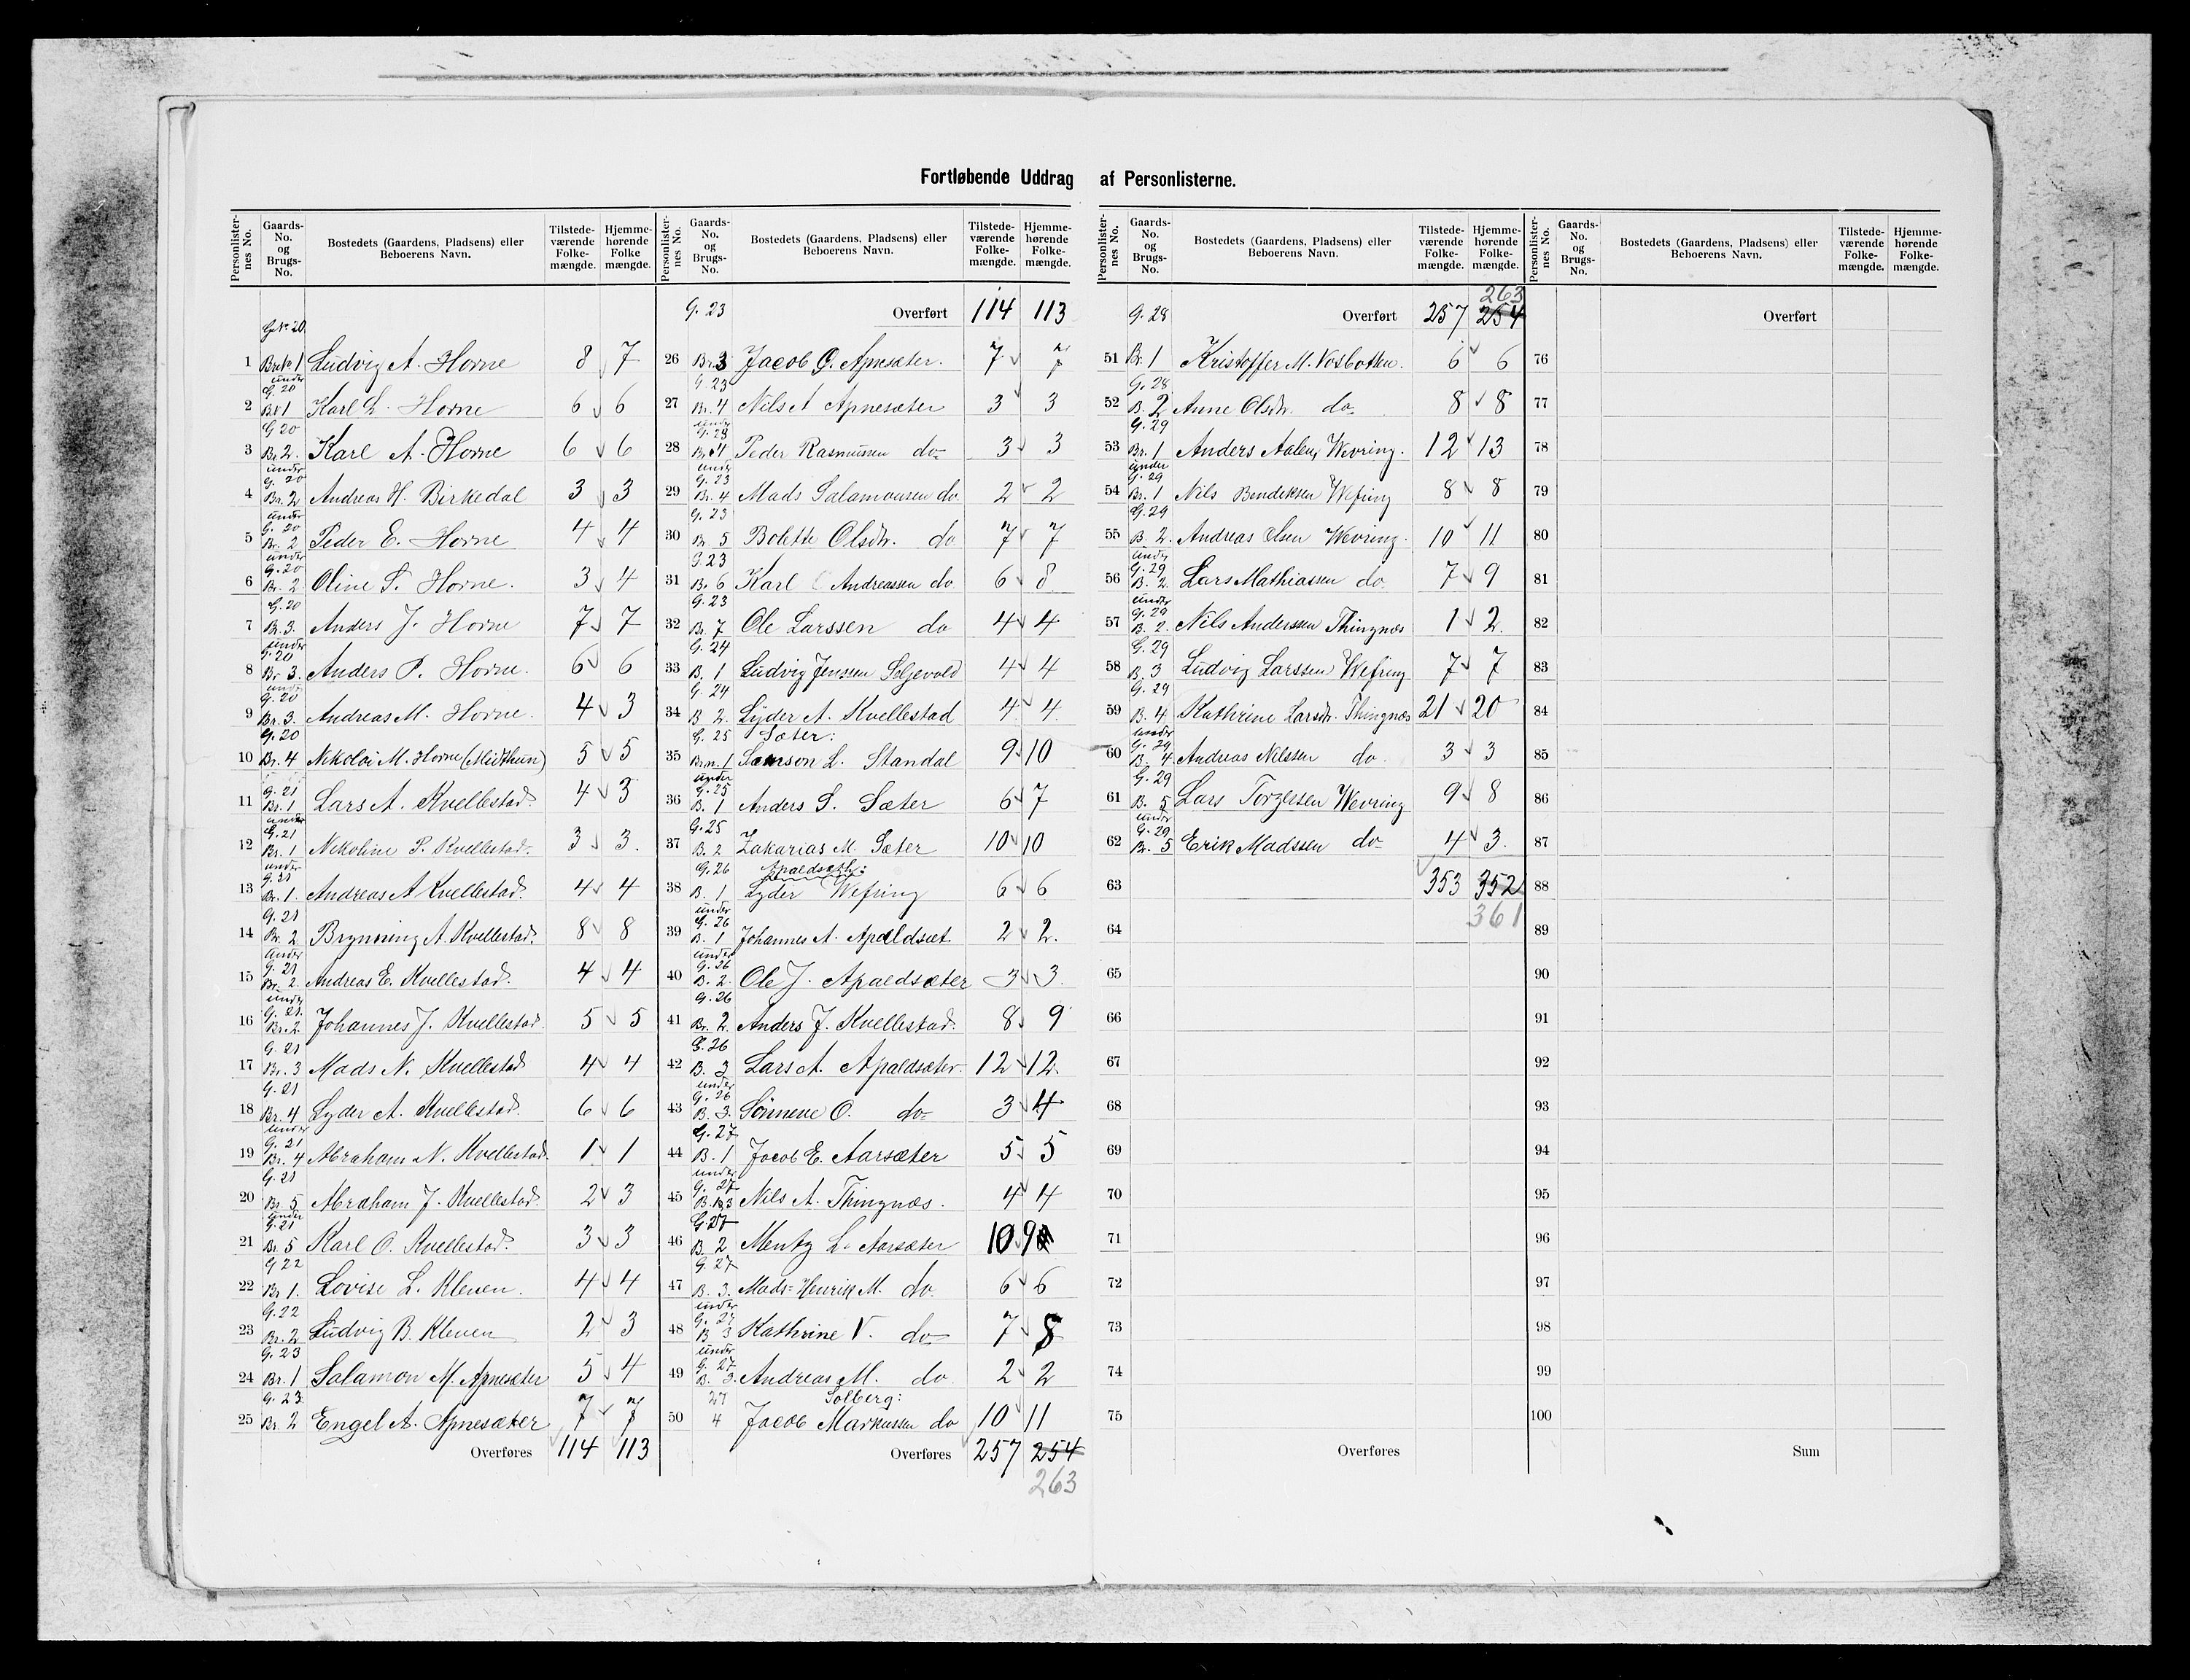 Fortløbende Uddrag af Personlisterne.
Personlister-nes No. Gaards-No. og Brugs-No. Bostedets (Gaardens, Pladsens) eller Beboerens Navn. Tilstede-værende Folke-mængde. Hjemme-hørende Folke mængde.
G.No 20
1 Br.No 1 Ludvig A. Horne 8 7
under G. 20
2 Br 1 Karl L. Horne 6 6
G 20
3 Br 2. Karl A. Horne 6 6
under G. 20
4 Br. 2 Andreas H. Birkedal 3 3
under G. 20
5 Br. 2 Peder E. Horne 4 4
under G. 20
6 Br. 2 Oline S. Horne. 3 4
G. 20
7 Br. 3. Anders J. Horne 7 7
under G. 20
8 Br 3. Anders P. Horne. 6 6
under G. 20
9 Br. 3. Andreas M. Horne. 4 3
G. 20
10 Br. 4 Nikolai M. Horne (Midthun) 5 5
G. 21
11 Br. 1 Lars A. Kvellestad. 4 3
under G. 21
12 Br. 1 Nikoline P. Kvellestad. 3 3.
under G. 21
13 Br. 1. Andreas A Kvellestad. 4 4
G. 21
14 Br. 2 Brynning A. Kvellestad. 8 8
under G. 21
15 Br. 2. Andreas E. Kvellestad. 4 4
under G. 21.
16 Br. 2. Johannes J. Kvellestad. 5 5
G. 21
17 Br. 3 Mads N. Kvellestad 4 4
G. 21
18 Br. 4 Lyder A. Kvellestad. 6 6
under G. 21
19 Br. 4 Abraham N. Kvellestad. 1 1
G. 21
20 Br. 5 Abraham J. Kvellestad. 2 3
under G. 21
21 Br. 5 Karl O. Kvellestad. 3 3
G 22
22 Br 1. Lovise L. Kleven. 4 4
G. 22
23 Br. 2 Ludvig B. Kleven 2 3
G. 23
24 Br. 1 Salamon M. Apnesæter 5 4
G. 23
25 Br. 2 Engel A. Apnesæter 7 7
Overføres 114 113
Personlister-nes No. Gaards-No. og Brugs-No. Bostedets (Gaardens, Pladsens) eller Beboerens Navn. Tilstede-værende Folke-mængde. Hjemme-hørende Folke-mængde.
G. 23 Overført 114 113
26 Br. 3 Jacob O. Apnesæter. 7 7
G. 23
27 Br. 4 Nils A Apnesæter 3 3
under G. 23
28 Br. 4 Peder Rasmussen do 3 3
under G. 23
29 Br. 4 Mads Salamonsen do 2 2
G. 23
30 Br. 5 Bolette Olsdtr. do 7 7
G. 23
31 Br. 6 Karl Andreassen do 6 8
G. 23
32 Br. 7 Ole Larssen do 4 4
G. 24
33 B. 1 Ludvig Jenssen Seljevold 4 4
G. 24
34 B 2. Lyder A. Kvellestad 4 4
G. 25 Sæter:
35 Br.n. 1 Samson L. Standal 9 10
under G. 25
36 B. 1 Anders S. Sæter 6 7
G. 25
37 B. 2 Zakarias M. Sæter 10 10
G. 26
38 B. 1 Lyder Wefring 6 6
under G. 26
39 B. 1 Johannes A. Apaldsæt 2 2.
under G. 26
40 B. 2. Ole J. Apaldsæter 3 3.
G. 26
41 Br. 2. Anders J. Kvellestad. 8 9
G. 26
42 B. 3 Lars A. Apaldsæter 12 12.
under G. 26
43 B. 3. Sönneve O. do 3 4
G. 27
44 B. 1 Jacob E. Aarsæter 5 5
under G. 27
45 Nils A. Thingnæs. 4 4
G. 27
46 B. 2 Mentz L. Aarsæter 10 9
G. 27
47 B. 3. Mads-Henrik M. do. 6 6
under G. 27
48 B 3 Kathrine V. do 7 8
under G. 27
49 B. 3. Andreas M. do 2 2
27 Solberg:
50 4 Jacob Markussen do 10 11
Overføres 257 254
263
Personlister-nes No. Gaards-No. og Brugs-No. Bostedets (Gaardens, Pladsens) eller Beboerens Navn. Tilstede-værende Folke-mængde. Hjemme-hørende Folke-mængde.
263
G. 28 Overført 257 254
51 Br. 1 Kristoffer M. Vosbotten. 6 6
G. 28
52 B. 2 Anne Olsdtr. do 8 8
G. 29
53 Br. 1 Anders Wevring. 12 13
under G. 29
54 Br. 1 Nils Bendiksen Wefring 8 8
G. 29
55 B. 2. Andreas Olsen Wevring. 10 11
under G. 29
56 B. 2. Lars Mathiassen do 7 9
under G. 29
57 B. 2. Nils Anderssen Thingnæs 1 2.
G. 29
58 B. 3 Ludvig Larssen Wefring 7 7
G. 29
59 B. 4 Kathrine Larsdtr. Thingnæs 21 20
under G. 29
60 B. 4 Andreas Nilssen do 3 3
G. 29
61 B. 5 Lars Torgersen Wevring 9 8
under G. 29
62 Br. 5 Erik Madssen do 4 3.
63 353 352
361
64
65
66
67
68
69
70
71
72
73
74
75
Overføres
Personlister-nes No. Gaards-No. og Brugs-No. Bostedets (Gaardens, Pladsens) eller Beboerens Navn. Tilstede-værende Folke-mængde. Hjemme-hørende Folke-mængde.
Overført
76
77
78
79
80
81
82
83
84
85
86
87
88
89
90
91
92
93
94
95
96
97
98
99
100
Sum